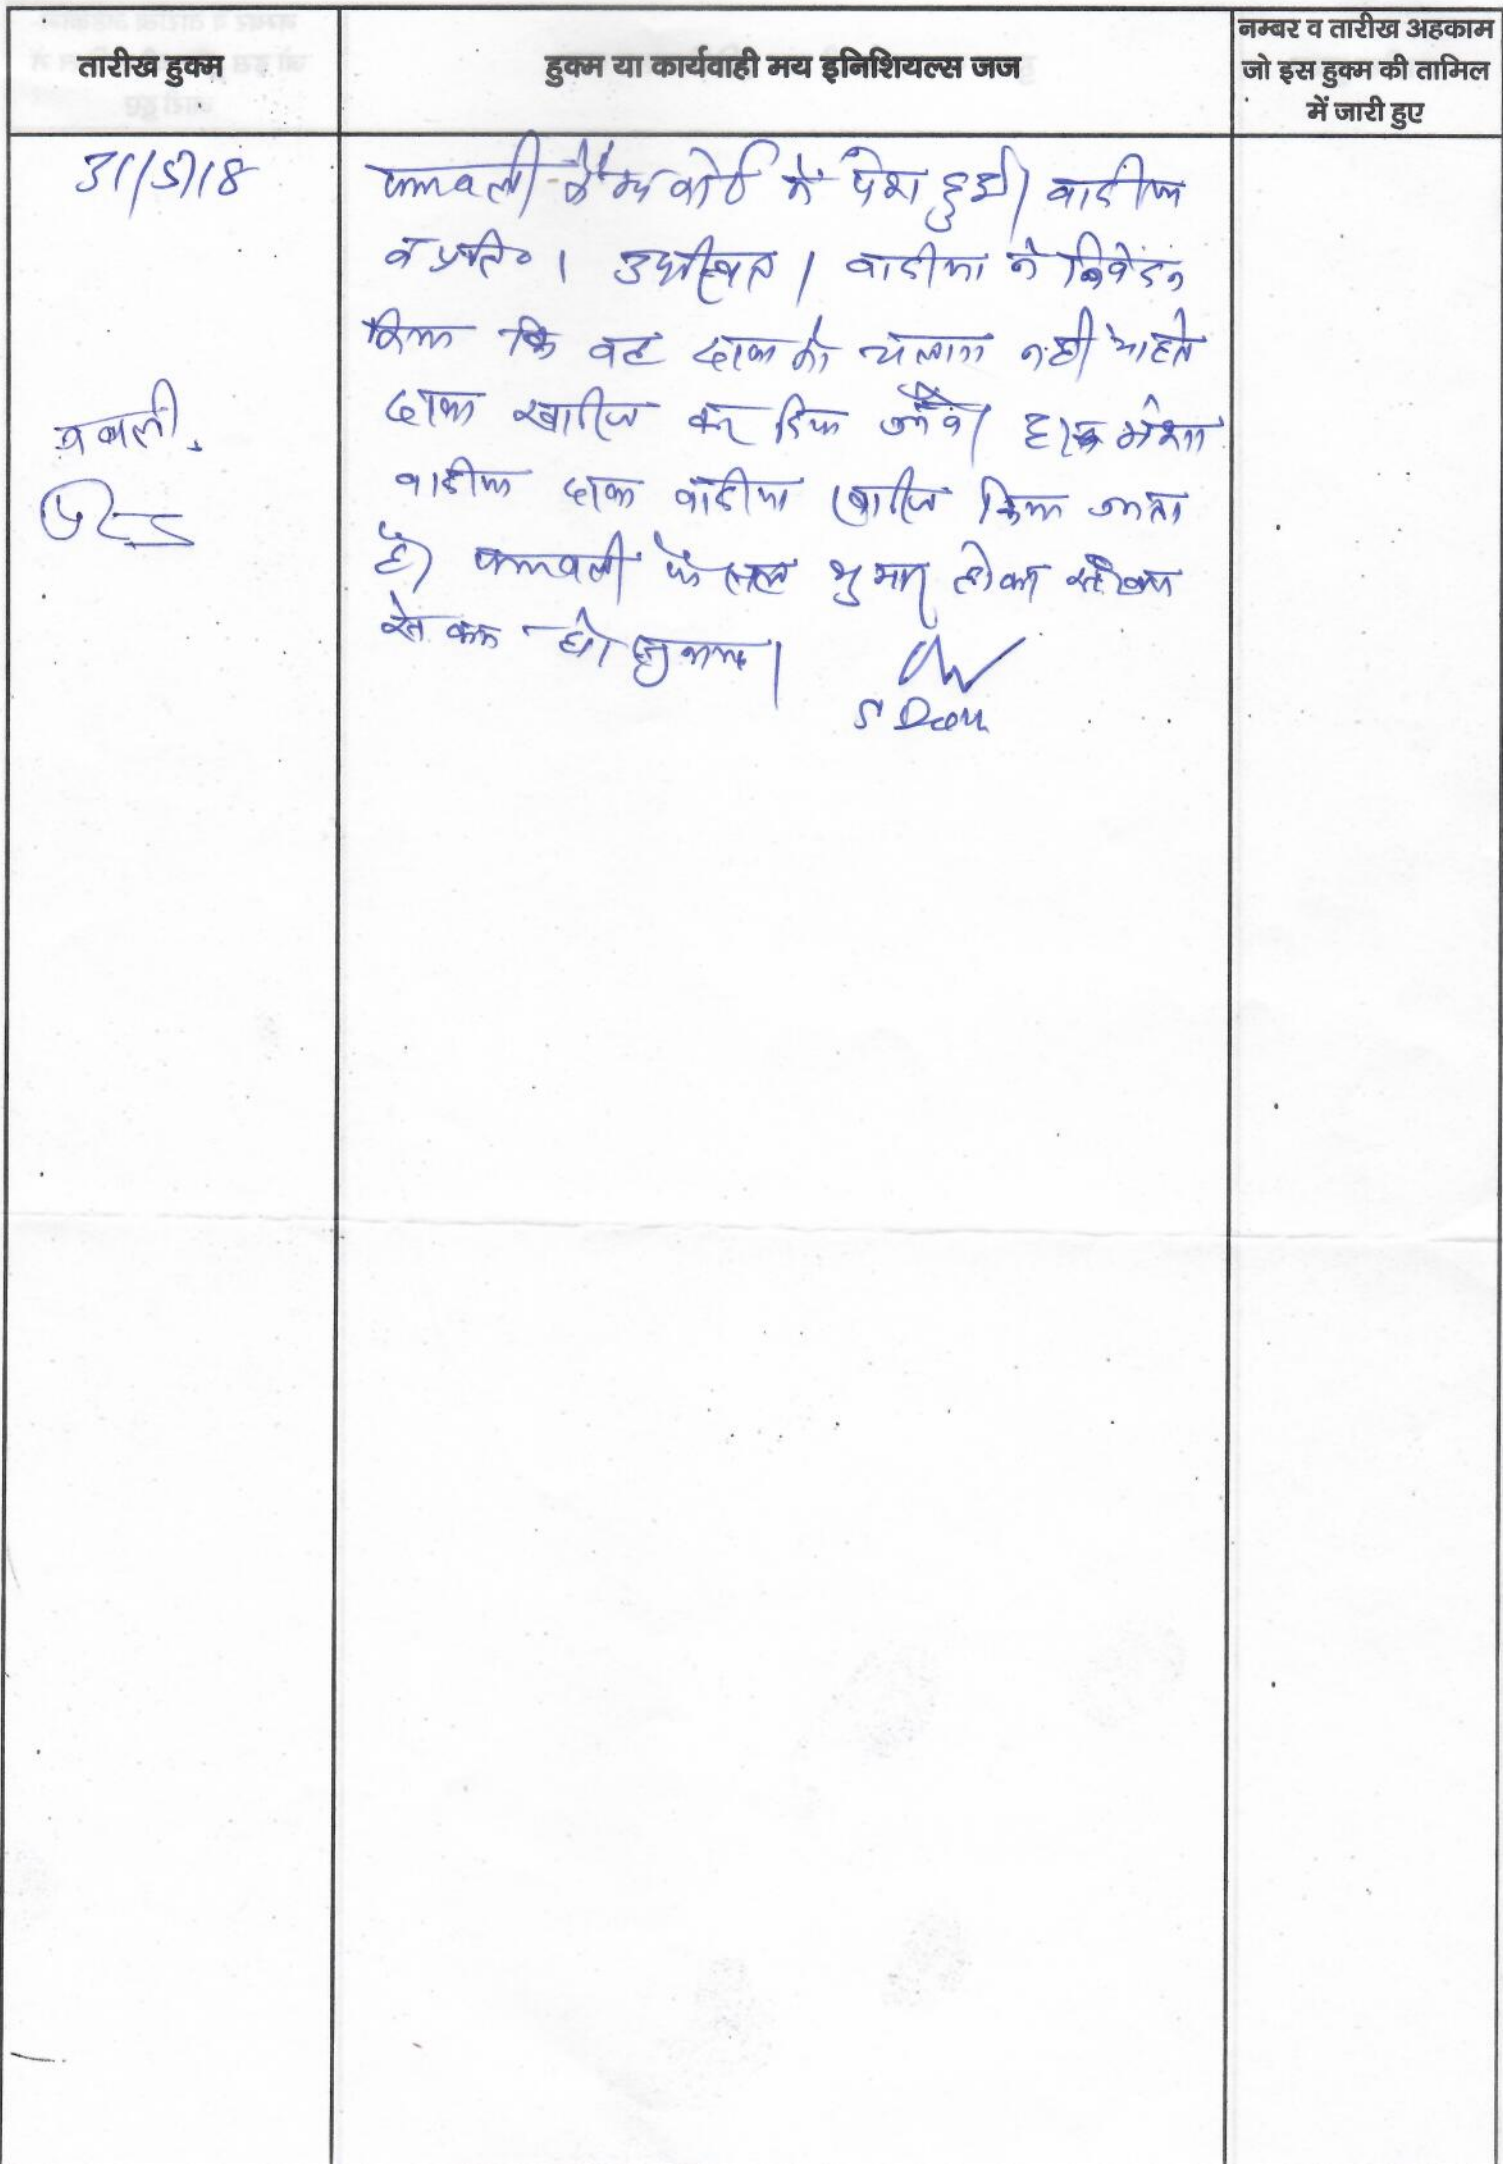 तारीख हुक्म
हुक्म या कार्यवाही मय इनिशियल्स जज
नम्बर व तारीख अहकाम
जो इस हुक्म की तामिल
में जारी हुए
31/5/18
पत्रावली कैम्प कोर्ट में पेश हुई। वादीया
व प्रति० । उपस्थित । वादीया ने निवेदन
किया कि वह दावा को चलाना नहीं चाहते
दावा खारिज कर दिया जावे।
वादीया दावा वादीया खारिज किया जाता
है। पत्रावली फैसल शुमार होकर